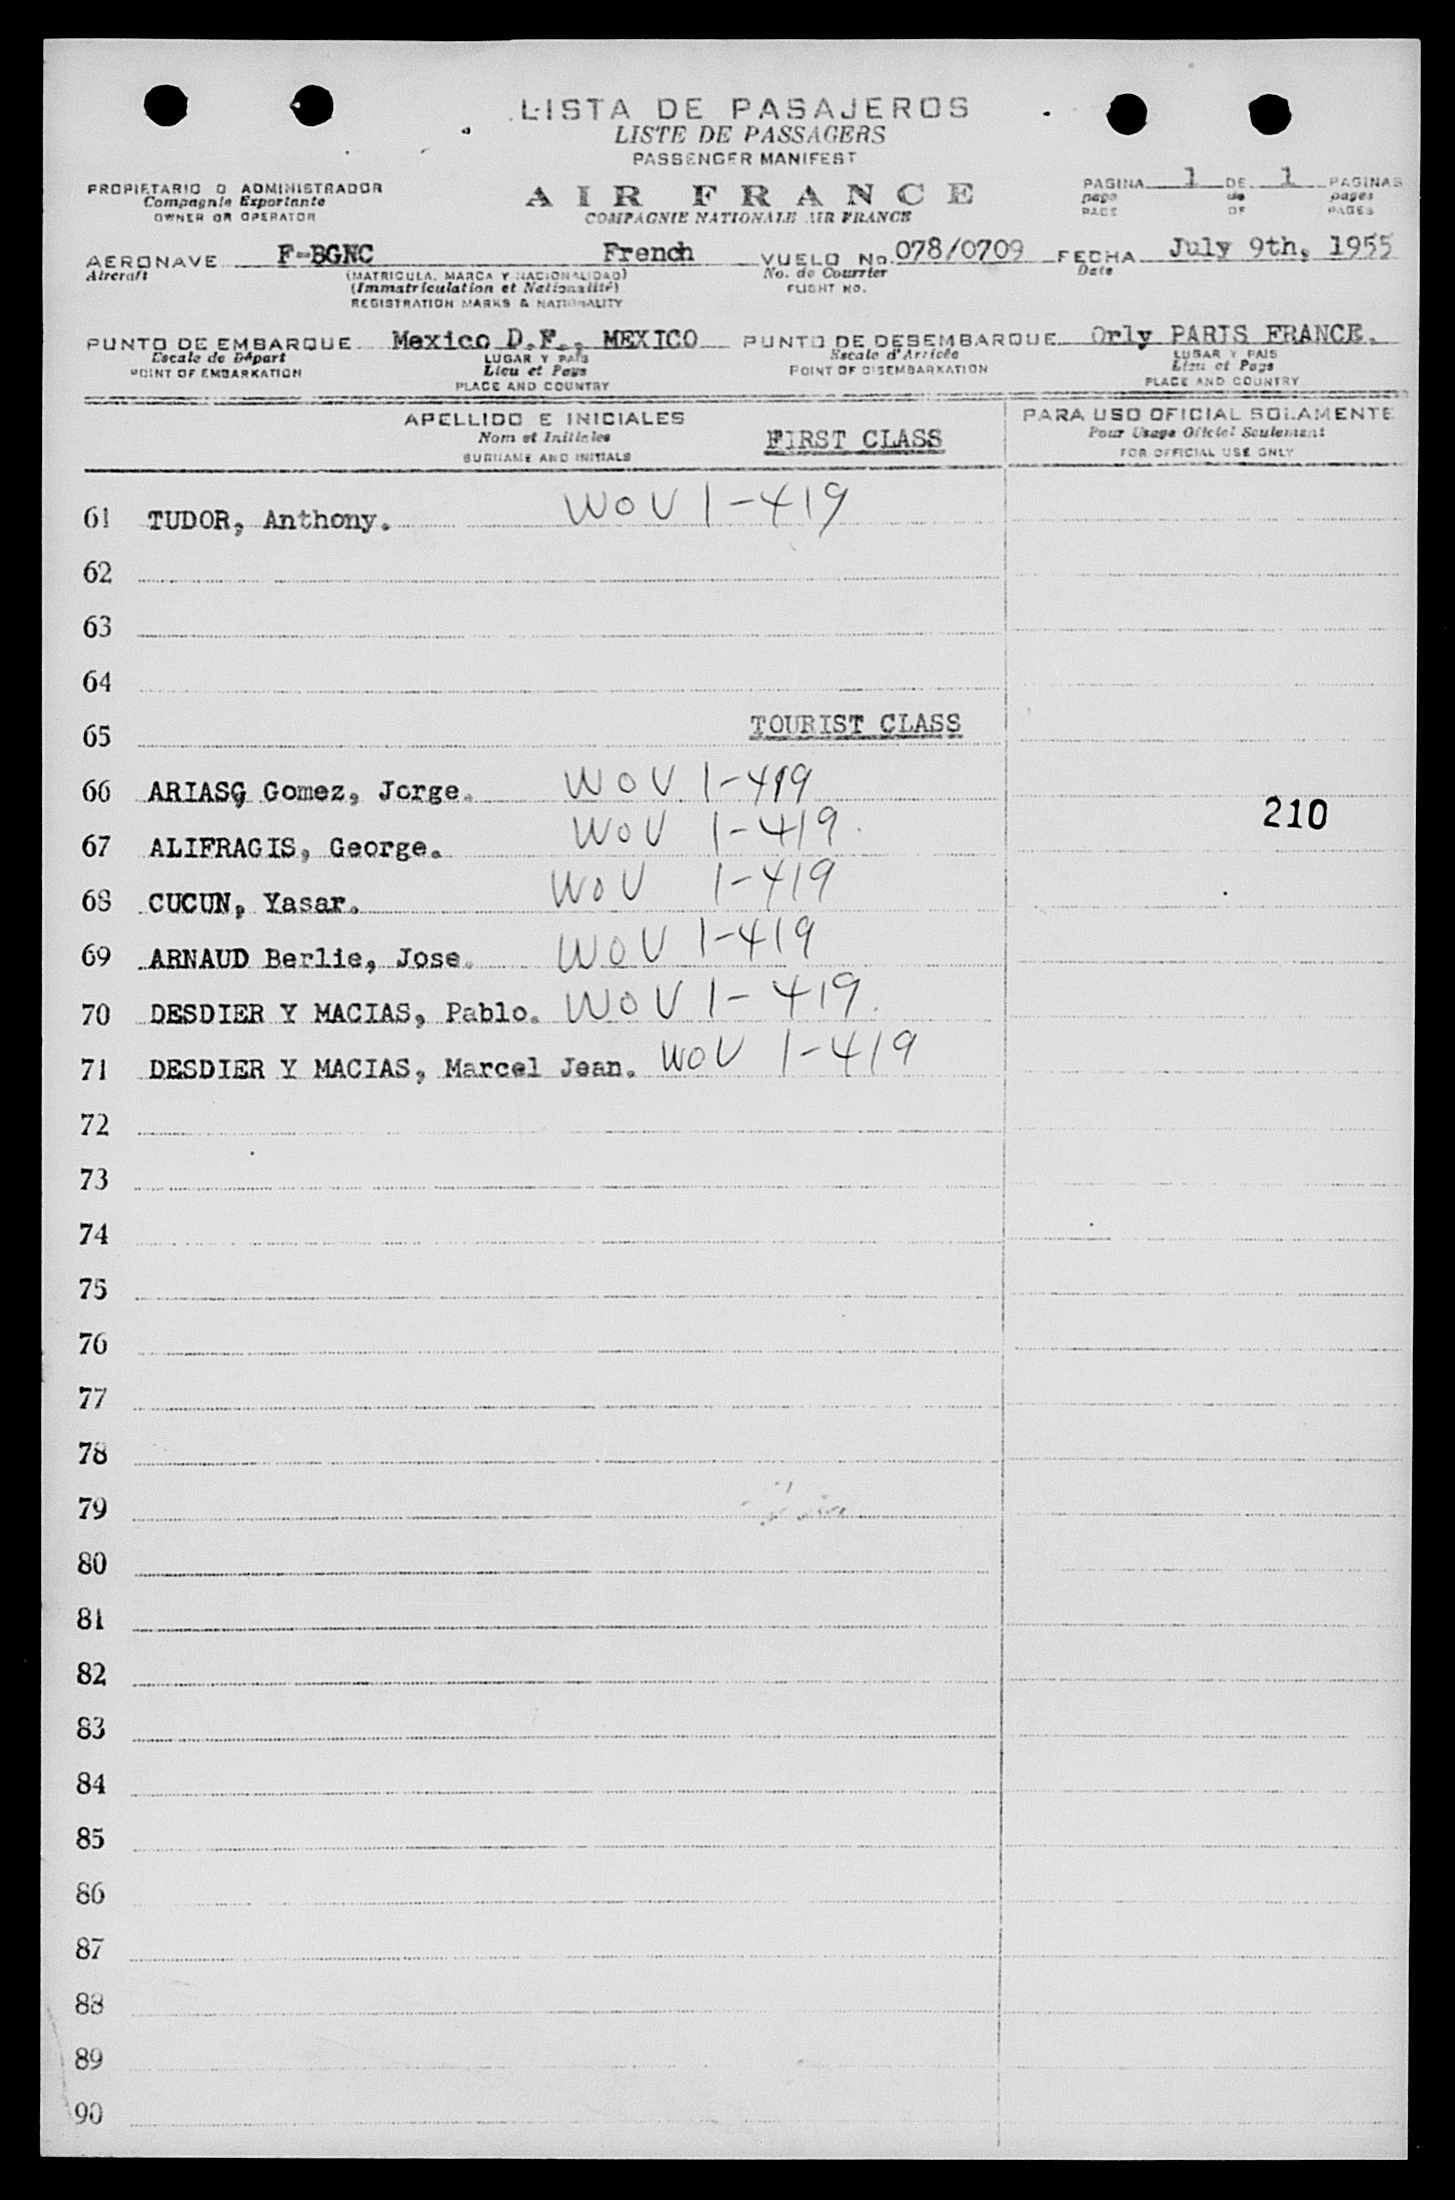 LISTA DE PASAJEROS
LISTE DE PASSAGERS
PASSENGER MANIFEST
PROPIETARIO O ADMINISTRADOR
Compagnie Exportante
OWNER OR OPERATOR
AIR FRANCE
COMPAGNIE NATIONALE AIR FRANCE
PAGINA 1 DE 1 PAGINAS
page de pages
PAGE OF PAGES
AERONAVE F-BGNC French VUELO No. 078/0709 FECHA July 9th, 1955
Aircraft (MATRICULA, MARCA Y NACIONALIDAD) No. de Courrier Date
(Immatriculation et Nationalité) FLIGHT NO.
REGISTRATION MARKS & NATIONALITY
PUNTO DE EMBARQUE Mexico D.F., MEXICO PUNTO DE DESEMBARQUE Orly PARIS FRANCE.
Escale de Départ LUGAR Y PAIS Escale d'Arrivée LUGAR Y PAIS
POINT OF EMBARKATION Lieu et Pays POINT OF DISEMBARKATION Lieu et Pays
PLACE AND COUNTRY PLACE AND COUNTRY
APELLIDO E INICIALES PARA USO OFICIAL SOLAMENTE
Nom et Initiales FIRST CLASS Pour Usage Officiel Seulement
SURNAME AND INITIALS FOR OFFICIAL USE ONLY
61 TUDOR, Anthony. WOV 1-419
62
63
64
65 TOURIST CLASS
66 ARIASG Gomez, Jorge. WOV 1-419
210
67 ALIFRAGIS, George. WOV 1-419.
68 CUCUN, Yasar. WOV 1-419
69 ARNAUD Berlie, Jose. WOV 1-419
70 DESDIER Y MACIAS, Pablo. WOV 1-419.
71 DESDIER Y MACIAS, Marcel Jean. WOV 1-419
72
73
74
75
76
77
78
79
80
81
82
83
84
85
86
87
88
89
90